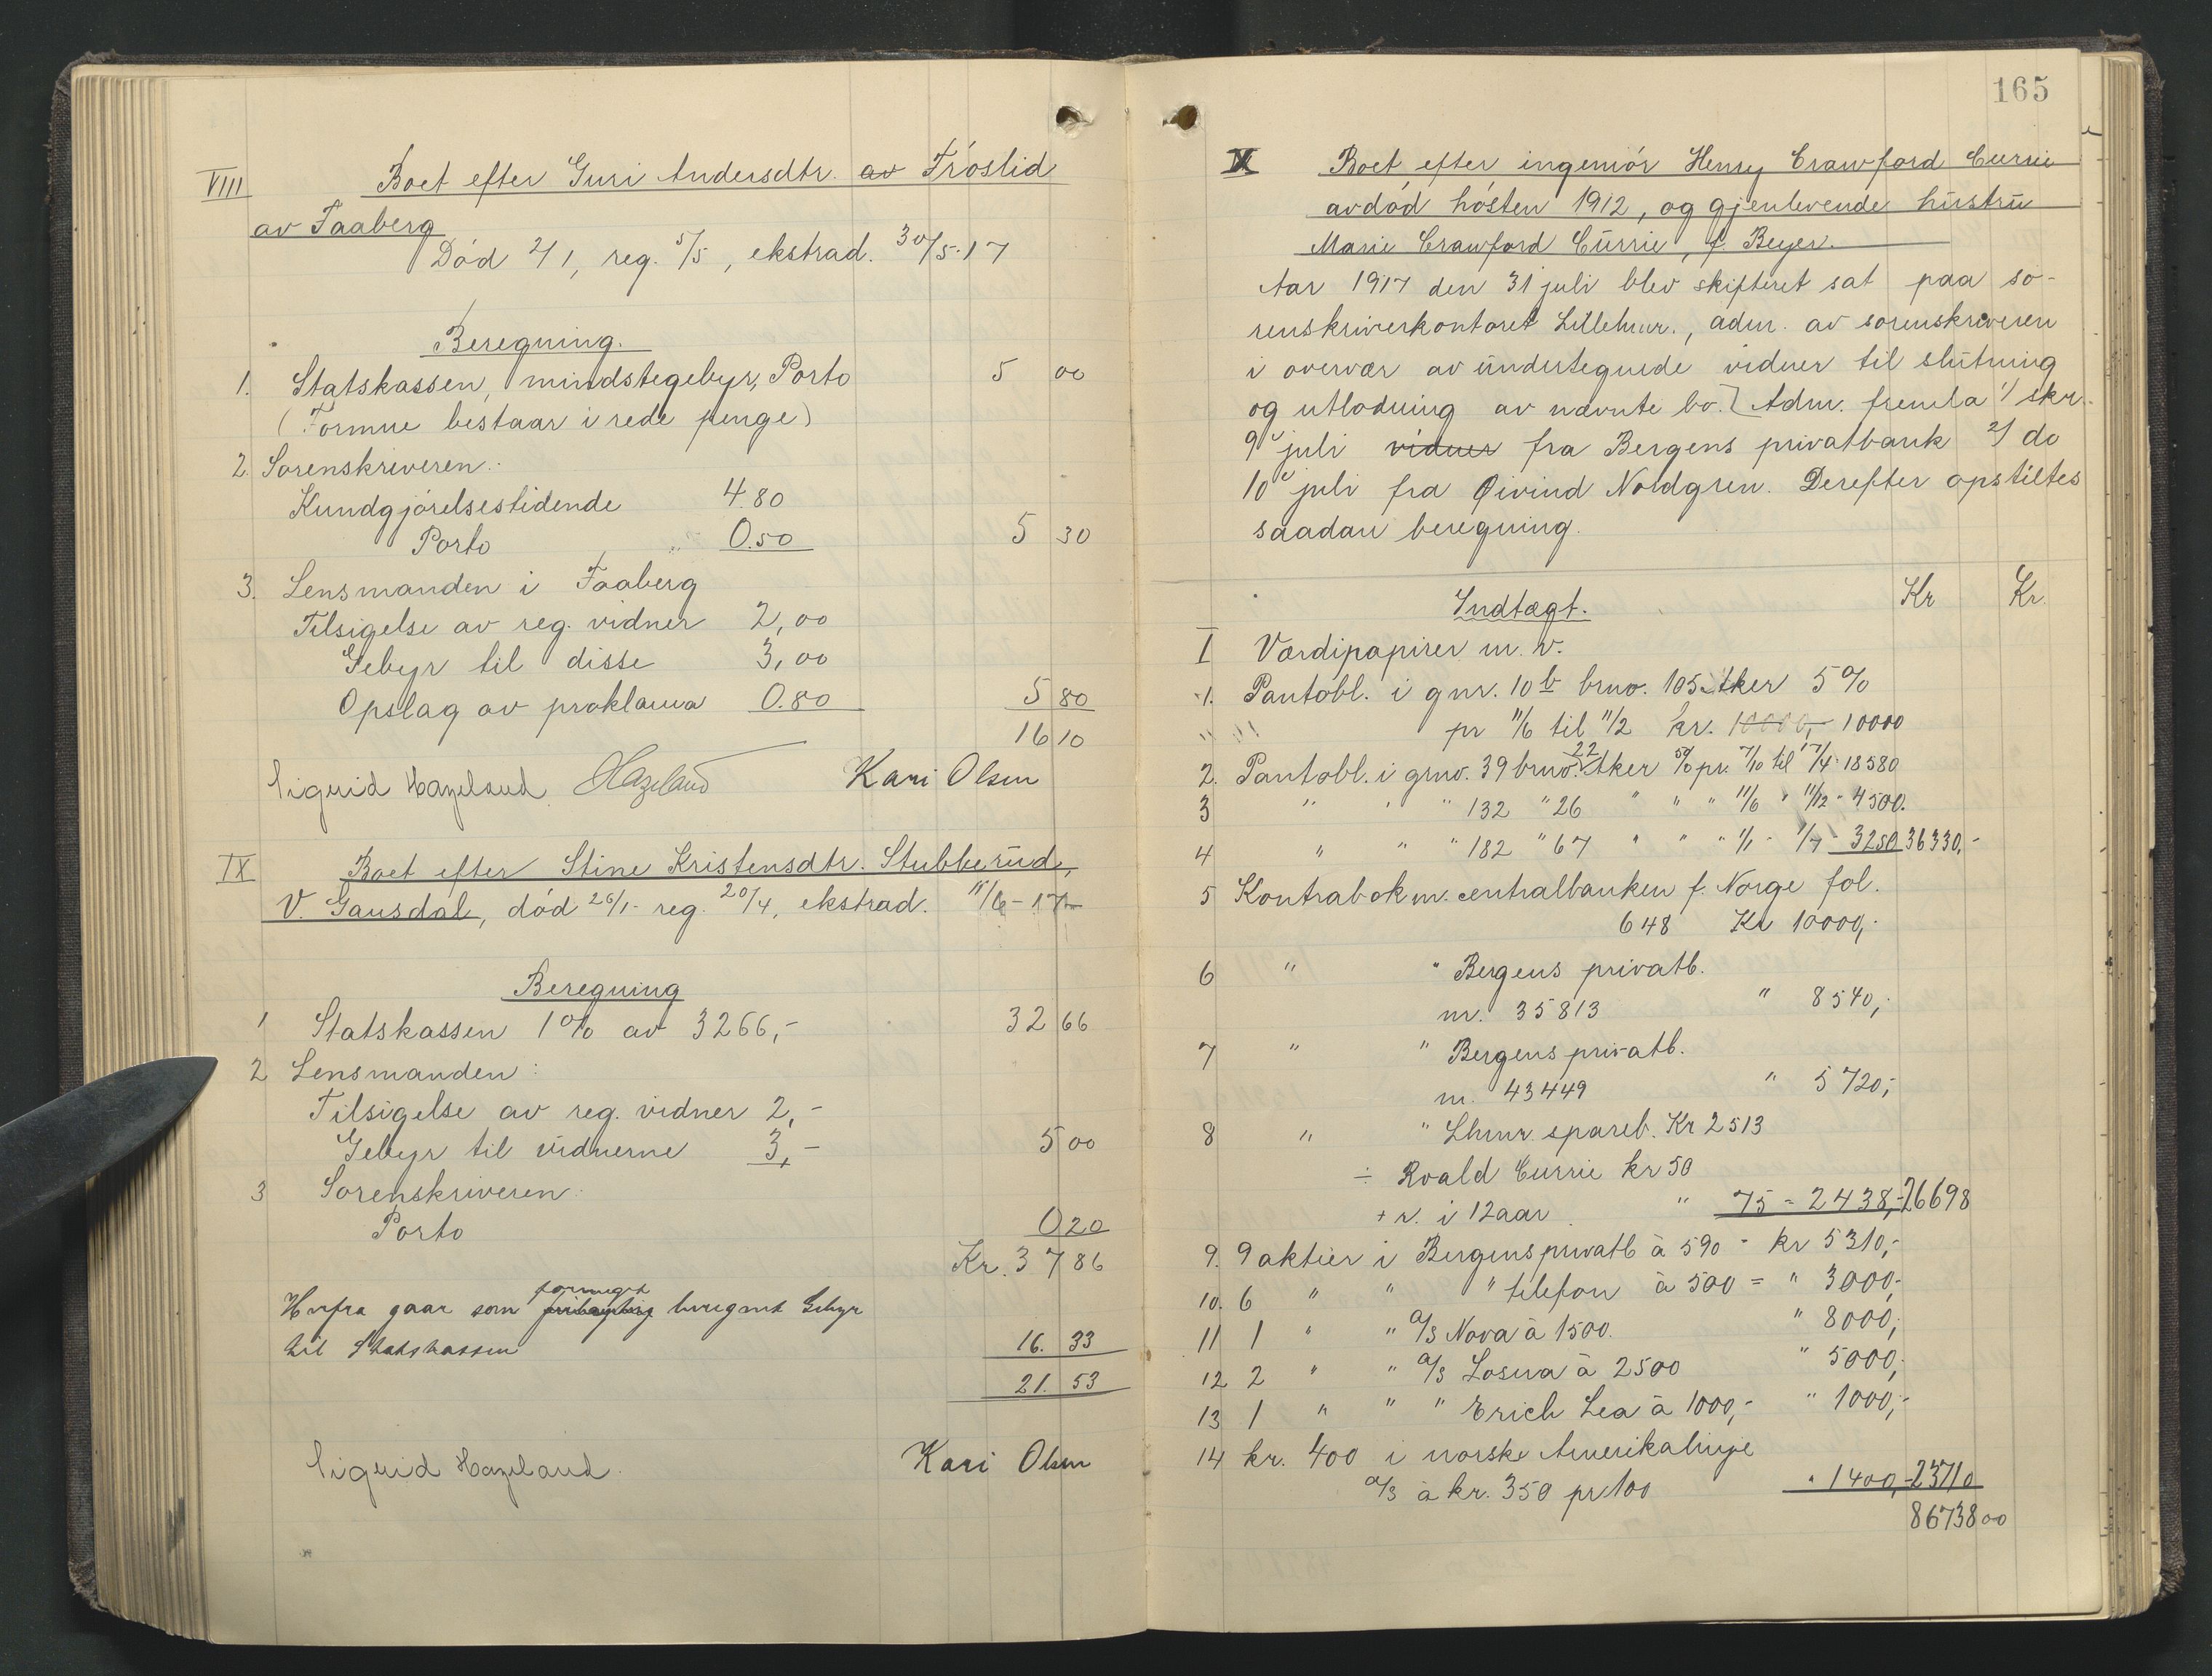 VIII Boet efter Guri Andersdtr. av Fróslid
av Faaberg
Död 2/1, reg. 5/5, ekstrad. 30/5-17
Beregning.
1. Statskassen, mindstegebyr, Porto 5 00
(Formue bestaar i rede penge)
2. Sorenskriveren:
Kundgjörelsestidende 4.80
Porto " 0.50 5 30
3. Lensmanden i Faaberg
Tilsigelse av reg. vidner 2,00
Gebyr til disse 3,00
Opslag av proklama 0.80 5 80
16 10
Sigurid Hazeland Hazeland Kari Olsen
IX Boet efter Stine Kristensdtr. Stubberud,
V. Gausdal, död 26/1- reg. 20/4, ekstrad. 11/6-17
Beregning
1 Statskassen 1% av 3266,- 32 66
2 Lensmanden:
Tilsigelse av reg. vidner 2,-
Gebyr til vidnerne 3,- 5 00
3 Sorenskriveren:
Porto 0 20
Kr. 37 86
Herfra gaar som formeget beregnet Gebyr
til Statskassen 16. 33
21. 53
Sigurid Hazeland. Kari Olsen
165
X Boet efter ingeniór Henry Crawford Currie
avdód hósten 1912, og gjenlevende hustru
Marie Crawford Currie, f. Beyer.
Aar 1917 den 31 juli blev skifteret sat paa so-
renskriverkontoret Lillehmr., adm. av sorenskriveren
i overvær av undertegnede vidner til slutning
og utlodning av nævnte bo. Adm. fremla 1/ skr.
9 juli vidner fra Bergens privatbank 2/ do
10 juli fra Øivind Nordgren. Derefter opstiltes
saadan beregning.
Indtægt. Kr Kr.
I Værdipapirer m. v.
1. Pantobl. i gnr. 10 b brno. 105 Aker 5%
pr 11/6 til 11/2 kr. 10000,- 10000
2. Pantobl. i grno. 39 brno. 22 Aker 5% pr. 7/10 til 17/4 - 18580
3 " " " 132 " 26 " " " 11/6 " 11/12 - 4500.
4 " " " 182 " 67 " " " 1/1 - 1/7 - 3250 36330,-
5 Kontrabok m. centralbanken f. Norge fol.
648 Kr 10000,-
6 " " Bergens privatb.
nr. 35813 " 8540,-
7 " " Bergens privatb.
nr. 43449 " 5720,-
8 " " Lhmr. spareb. Kr 2513
÷ Roald Currie kr 50
+ r. i 12 aar " 75 = 2438,- 26698
9. 9 aktier i Bergens privatb à 590 - kr 5310,-
10. 6 " " " telefon à 500 = " 3000,-
11 1 " " a/s Nova à 1500. " 8000,-
12 2 " " a/s Losna à 2500 " 5000,-
13 1 " " " Erich Lea à 1000,- " 1000,-
14 kr. 400 i norske Amerikalinje
a/s à kr. 350 pr 100 " 1400,- 23710
86738 00